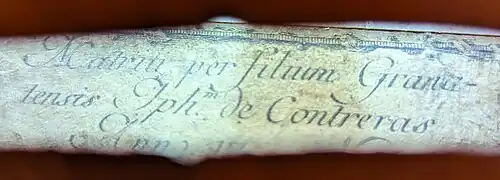 Matriti per filium Grana-
tensis Jph.m de Contreras
Anno